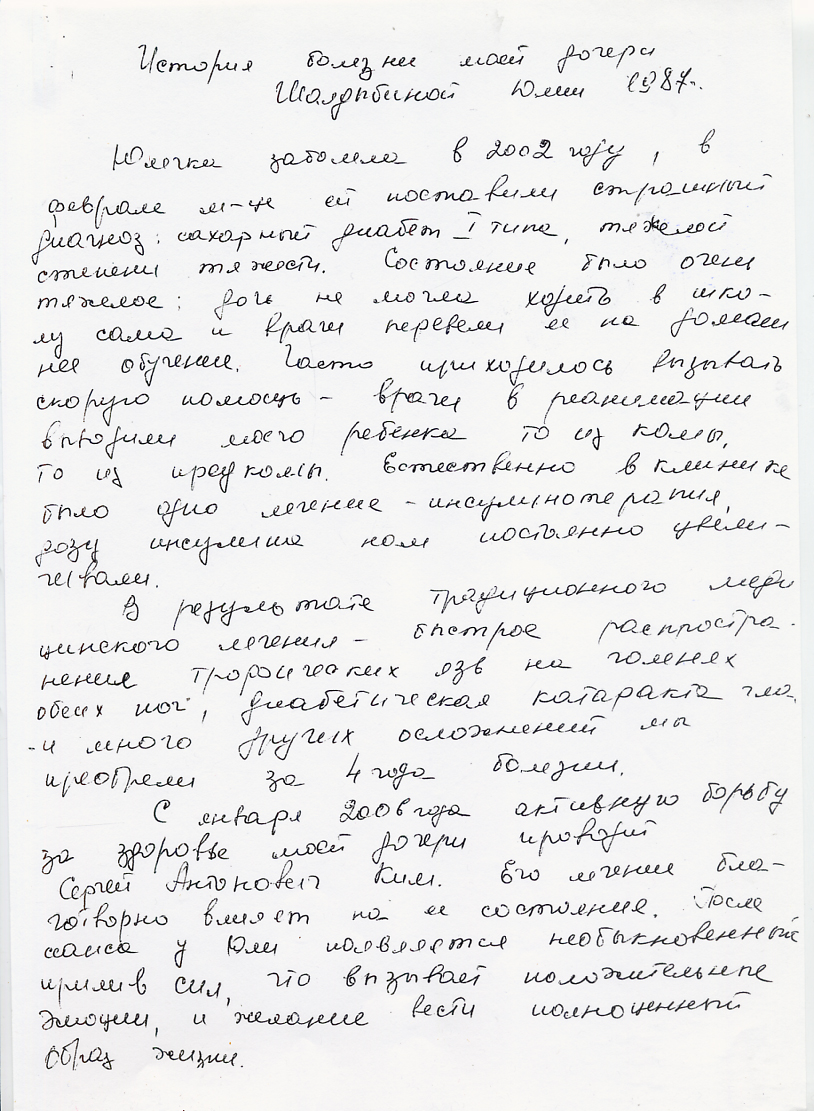 История болезни моей дочери
Шалдыбиной Юлии 1987г.
Юлечка заболела в 2002 году, в
феврале м-це ей поставили страшный
диагноз: сахарный диабет I типа, тяжелой
степени тяжести. Состояние было очень
тяжелое: дочь не могла ходить в шко-
лу сама и врачи перевели ее на домаш
нее обучение. Часто приходилось вызывать
скорую помощь - врачи в реанимации
выводили моего ребенка то из комы,
то из предкомы. Естественно в клинике
было одно лечение - инсулинотерапия,
дозу инсулина нам постоянно увели-
чивали.
В результате традиционного меди
цинского лечения - быстрое распростра-
нения трофических язв на голенях
обеих ног, диабетическая катаракта гла.
- и много других осложнений мы
приобрели за 4 года болезни.
С января 2006 года активную борьбу
за здоровье моей дочери проводит
Сергей Антонович Ким. Его лечение бла-
готворно влияет на ее состояние. После
сеанса у Юли появляется необыкновенный
прилив сил, что вызывает положительные
эмоции, и желание вести полноценный
образ жизни.